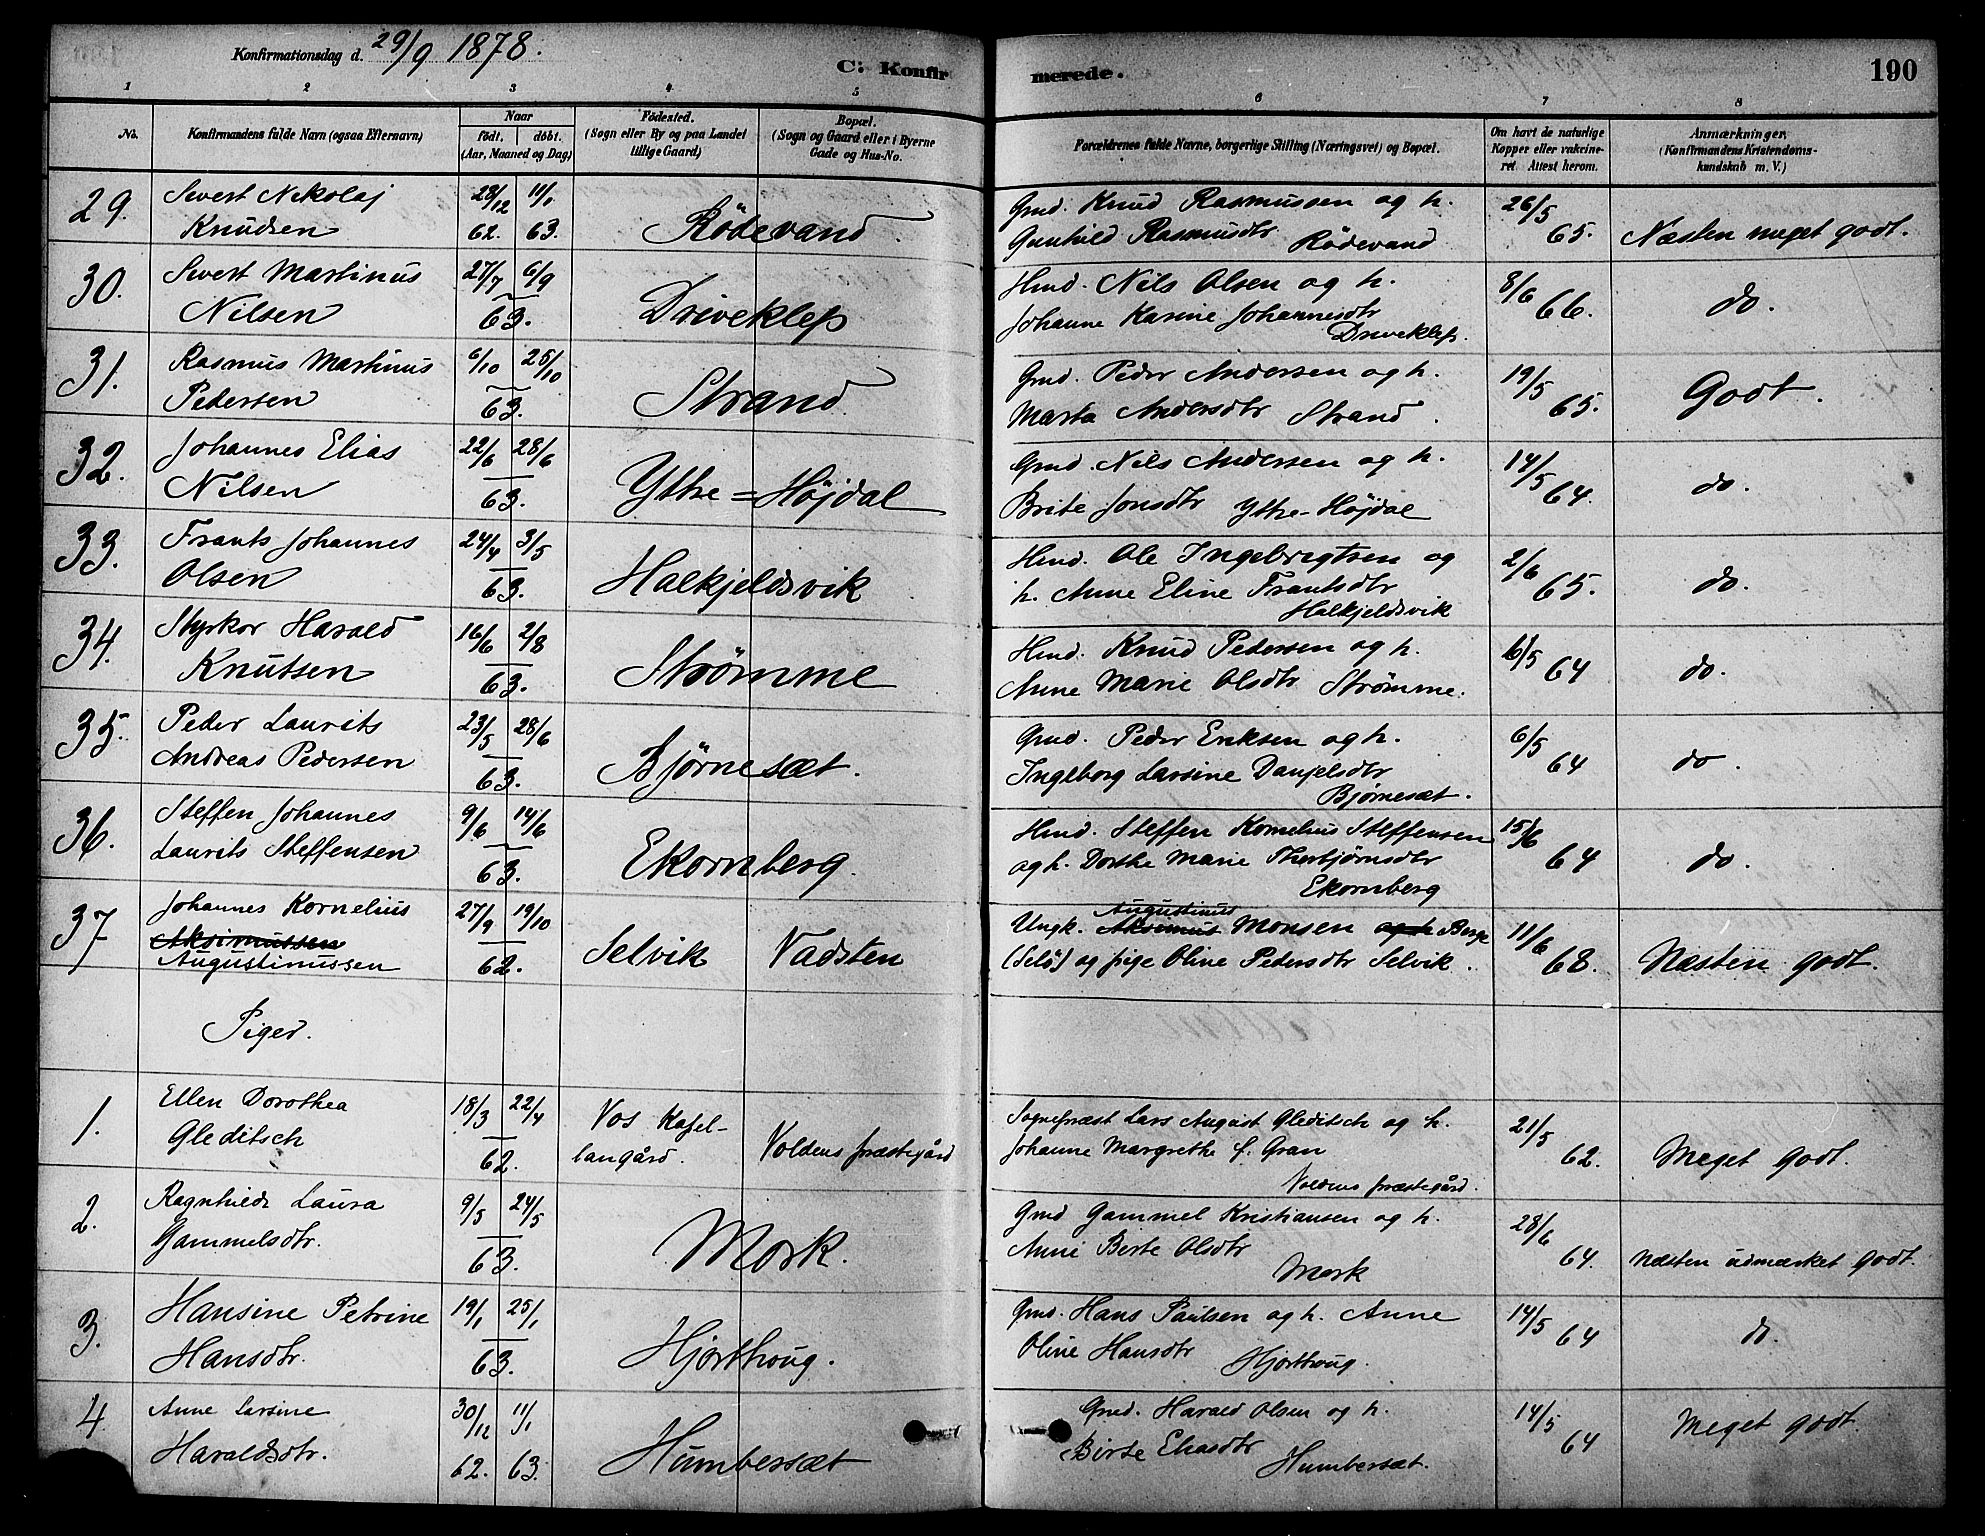 Konfirmationsdag d. 29/9 1878.
C: Konfirmerede.
190
1 2 3 4 5 6 7 8
No. Konfirmandens fulde Navn (ogsaa Efternavn) Naar født. døbt. (Aar, Maaned og Dag) Fødested. (Sogn eller By og paa Landet tillige Gaard) Bopæl. (Sogn og Gaard eller i Byerne Gade og Hus-No. Forældrenes fulde Navne, borgerlige Stilling (Næringsvei) og Bopæl. Om havt de naturlige Kopper eller vakcineret Attest herom. Anmærkninger. (Konfirmandens Kristendomskundskab m. V.)
29. Sivert Nikolaj 28/12 11/1 Gmd. Knud Rasmussen og h. 26/5
Knudsen 62. 63. Rödevand. Gunhild Rasmusdtr Rödevand 65. Næsten meget godt.
30. Sivert Martinus 27/7 6/9 Hmd. Nils Olsen og h. 8/6
Nilsen 63. Driveklep Johanne Karine Johannesdtr 66. do.
Driveklep.
31. Rasmus Martinus 6/10 25/10 Gmd. Peder Andersen og h. 19/5
Pedersen 63. Strand Marta Andersdtr Strand. 65. Godt.
32. Johannes Elias 22/6 28/6 Gmd. Nils Andersen og h. 14/5
Nilsen 63. Ytre=Höjdal Brite Jonsdtr Ytre-Höjdal 64. do.
33. Frants Johannes 24/4 3/5 Hmd. Ole Ingebrigtsen og 2/6
Olsen 63. Halkjeldsvik h. Anne Eline Frantsdtr 65. do.
Halkjeldsvik
34. Styrkor Harald 16/6 2/8 Hmd. Knud Pedersen og h. 6/5
Knutsen 63. Strømme Anne Marie Olsdtr Strömme. 64 do.
35. Peder Laurits 23/5 28/6 Gmd. Peder Eriksen og h. 6/5
Andreas Pedersen 63. Bjørnesæt. Ingeborg Larsine Danjelsdtr 64 do.
Bjørnesæt.
36. Steffen Johannes 9/6 14/6 Hmd. Steffen Kornelius Steffensen 15/6
Laurits Steffensen 63. Ekornberg. og h. Dorthe Marie Thorbjørnsdtr 64 do.
Ekornberg
37 Johannes Kornelius 27/9 19/10 Ungk. Augustinus Monsen Berge 11/6
Aksimussen
Augustinussen 62. Selvik Vadsten (Selö) og pige Oline Pedersdtr Selvik. 68. Næsten godt.
Piger.
1. Ellen Dorothea 18/3 22/4 Vos Kapel- Sognepræst Lars August Gleditsch og h. 21/5
Gleditsch 62. langård. Voldens præstegård Johanne Margrethe f. Gran 62. Meget godt.
Voldens præstegård.
2. Ragnhilde Laura 9/5 24/5 Gmd Gammel Kristiansen og h. 28/6
Gammelsdtr. 63. Mork. Anne Berte Olsdtr 64. Næsten udmærket godt.
Mork
3. Hansine Petrine 19/1 25/1 Gmd. Hans Paulsen og h. Anne 14/5
Hansdtr. 63. Hjorthoug. Oline Hansdtr Hjorthoug. 64 do.
4 Anne Larsine 30/12 11/1 Gmd. Harald Olsen og h. 14/5
Haraldsdtr. 62. 63. Humbersæt Birte Eliasdtr Humbersæt. 64 Meget godt.